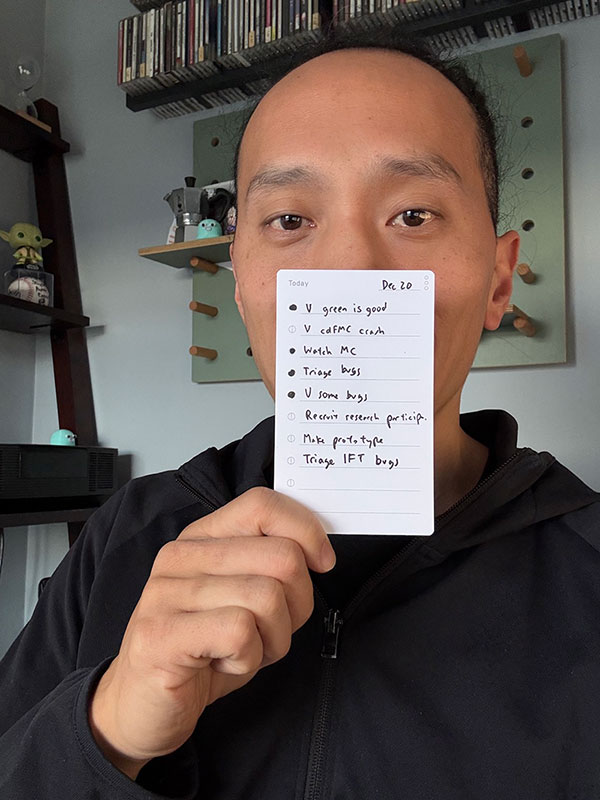 Today
Dec 20
V green is good
V cdFMC crash
Watch MC
Triage bugs
V some bugs
Recruit research particip.
Make prototype
Triage IFT bugs